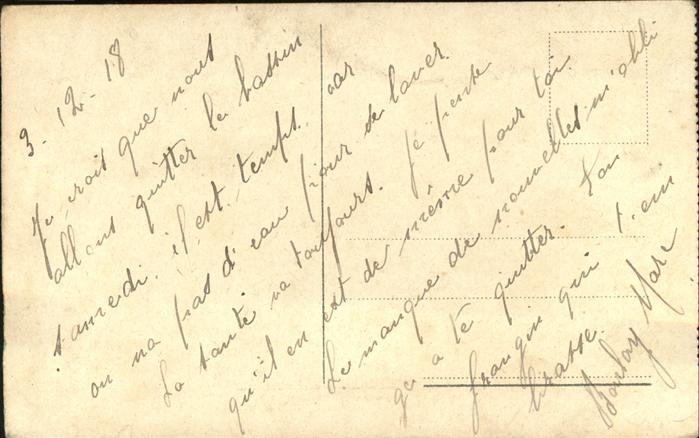 3-12-18
Je crois que nous
allons quitter le bassin
samedi. il est temps. car
on na pas d'eau pour se laver.
La santé va toujours. Je pense
qu'il en est de même pour toi.
Le manque de nouvelles m'obli
ge a te quitter. Ton
frangin qui t'em
brasse.
Marc